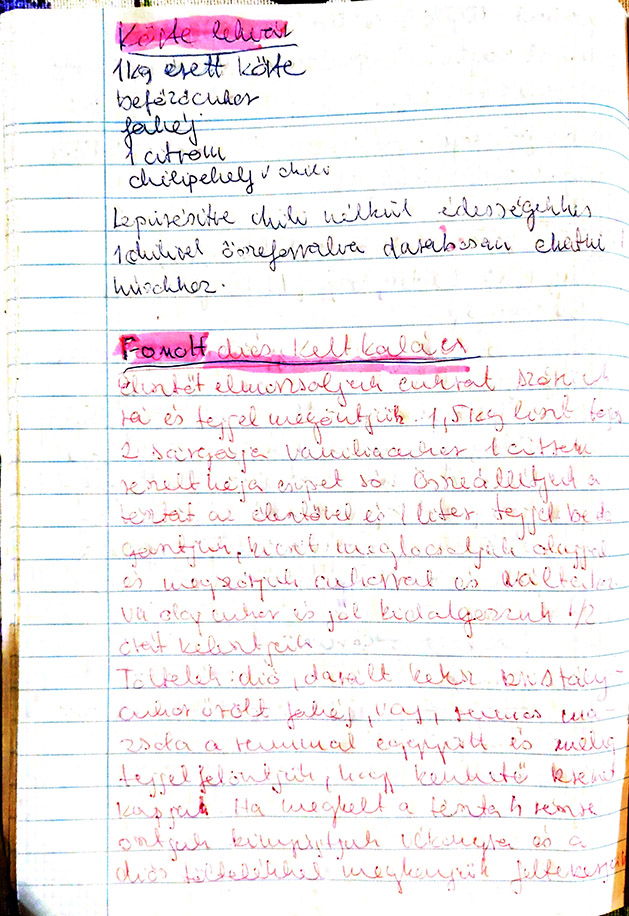 Körte lekvár
1 kg érett körte
befőzőcukor
fahéj
1 citrom
chilipehely v chili
Lepürésítve chili nélkül édességekhez
1 chilivel összeforralva darabosan eltenni
húsokhoz.
Fonott diós kelt kalács
élesztőt elmorzsoljuk cukrot szórunk
rá és tejjel megöntjük. 1,5 kg liszt
2 sárgája vaniliacukor 1 citrom
reszelt héja csipet só. Összeállítjuk a
tésztát az élesztővel és 1 liter tejjel
kicsit meglocsoljuk olajjal
és megszórjuk cukorral és
olaj cukor és jól kidolgozzuk 1/2
órát kelesztjük
Töltelék: dió, darált keksz kristály-
cukor őrölt fahéj, vaj, rumos
a rummal együtt és meleg
tejjel felöntjük, hogy kenhető krémet
kapjunk Ha megkelt a tészta 4 részre
osztjuk kinyújtjuk vékonyra és a
diós töltelékkel megkenjük feltekerjük